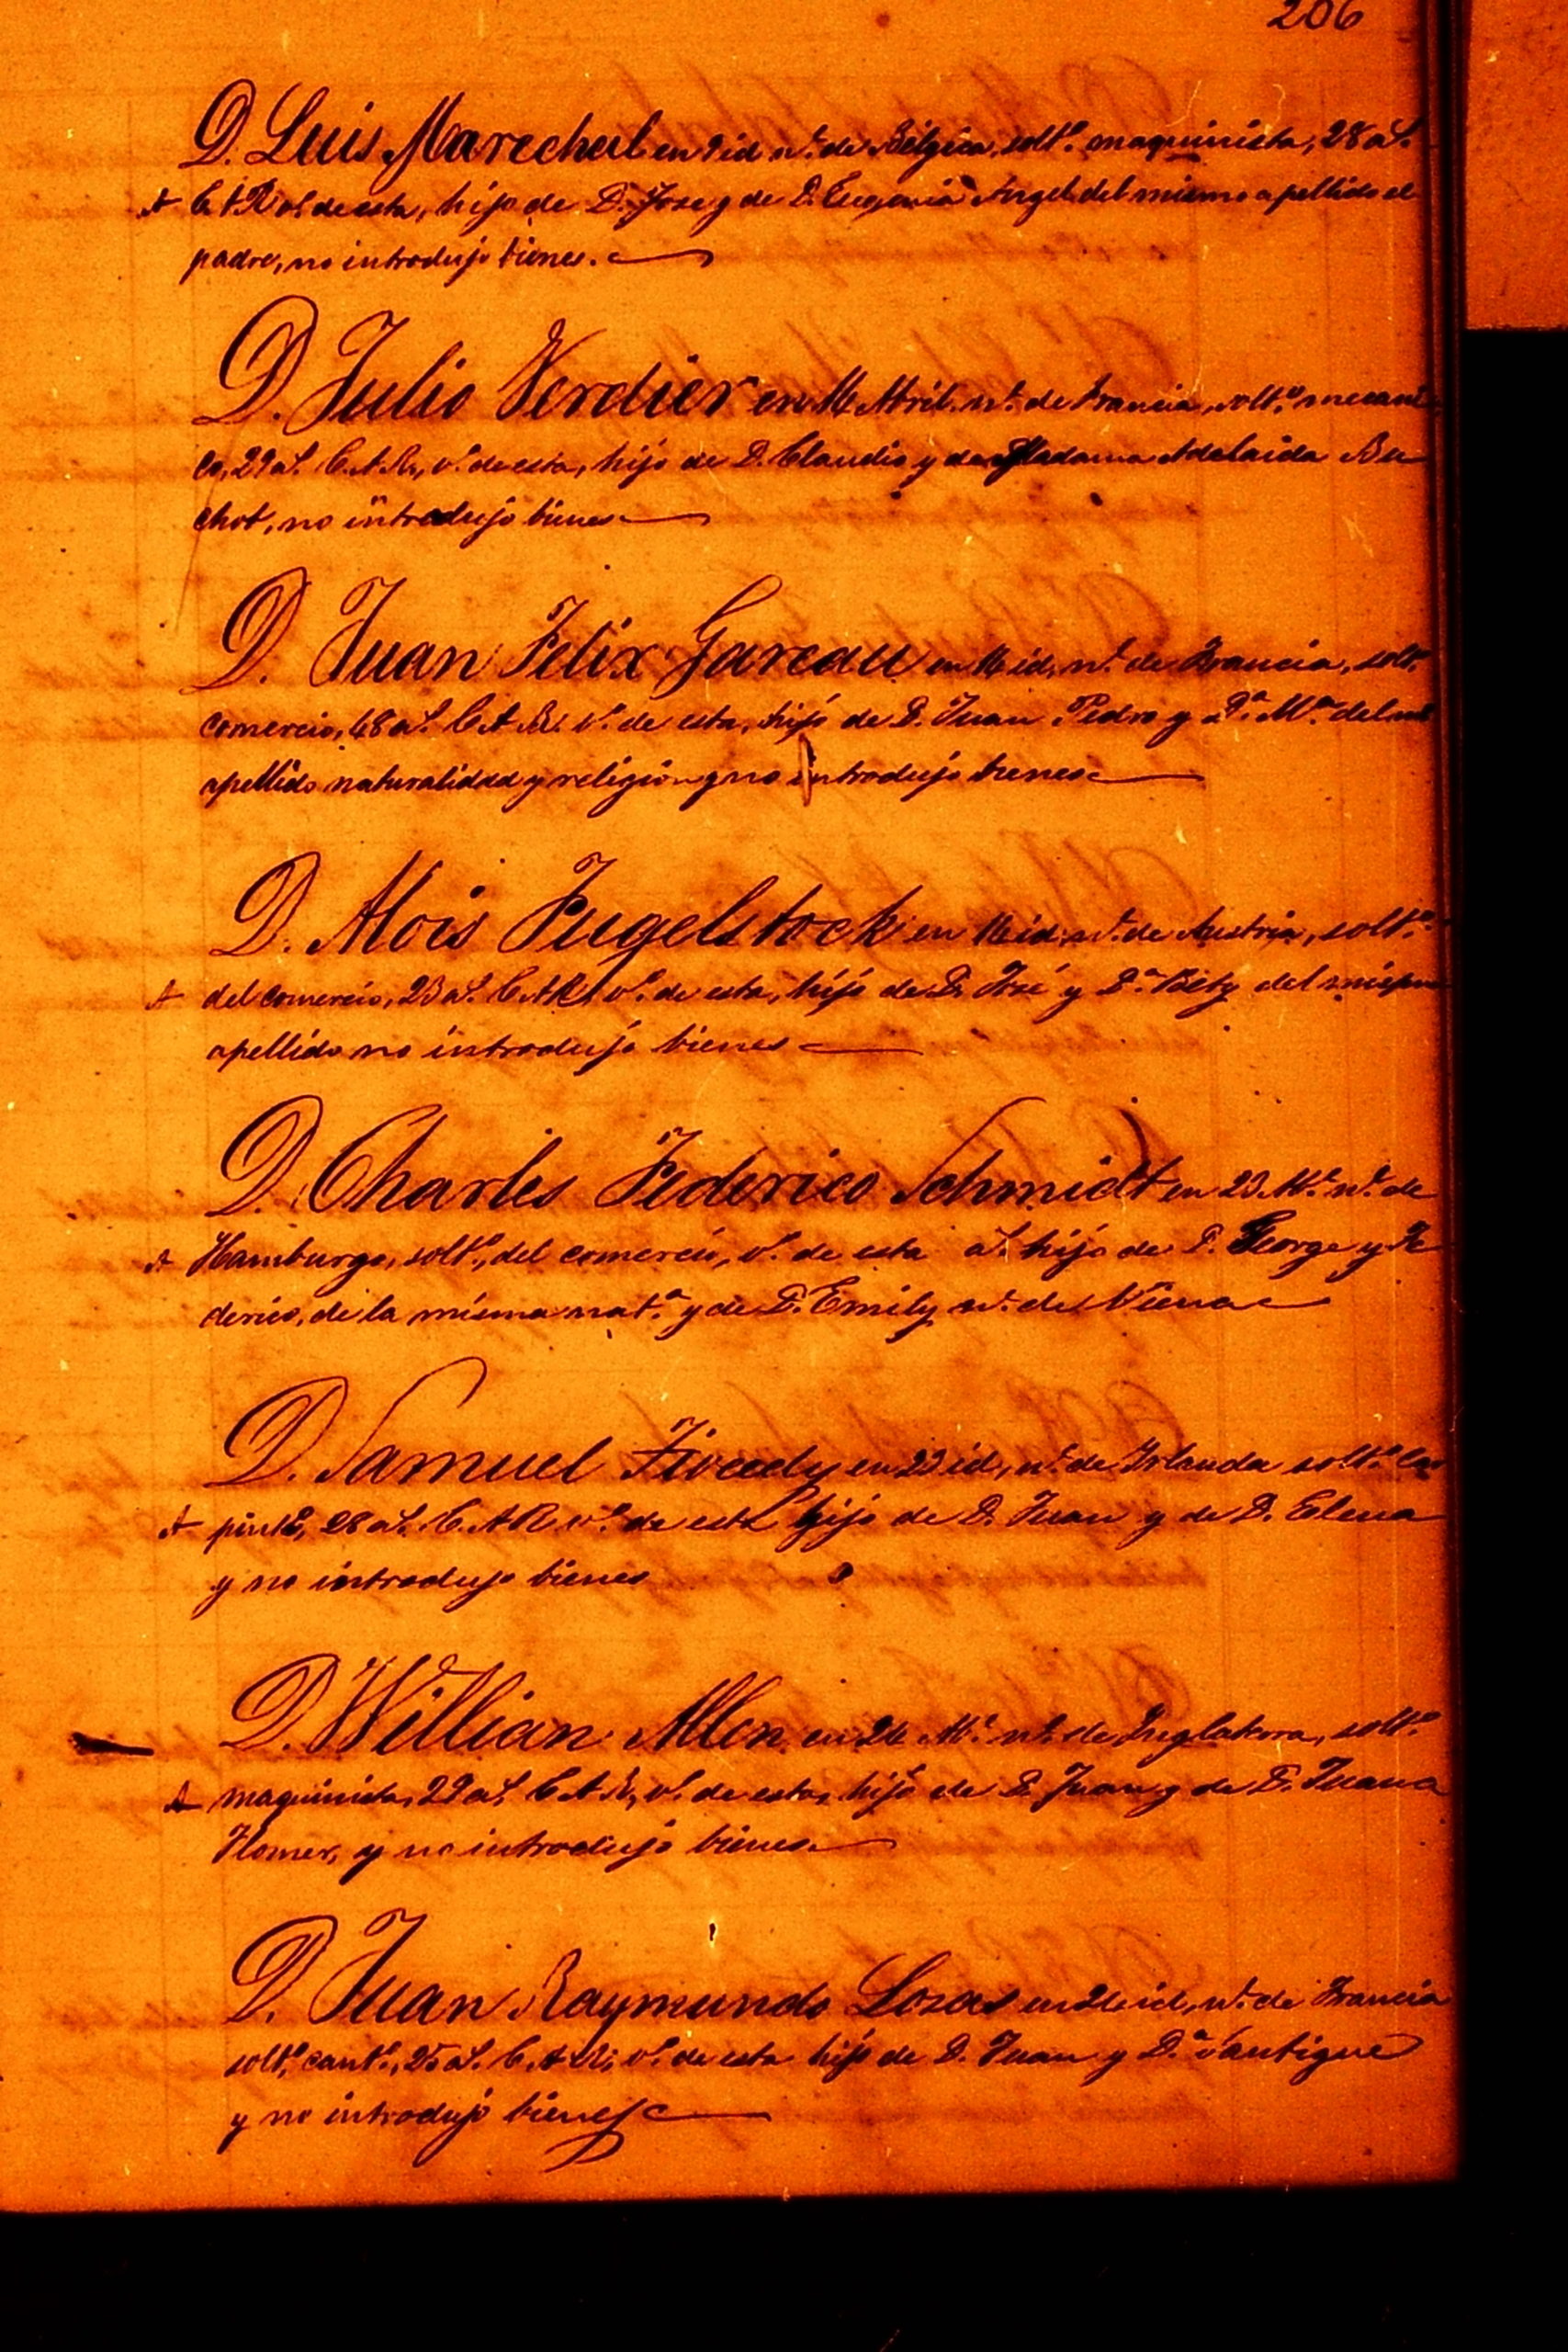 206
D. Luis Marechal en 9 id n.l de Bélgica, solt.o maquinista, 28 a.s
A C. A R v.o de esta, hijo de D. Jose y de D. Eugenia Angel del mismo apellido el
padre, no introdujo bienes.
D. Julio Verdier en 16 Abril, n.l de Francia, solt.o mecani
co, 29 a.s C. A. R., v.o de esta, hijo de D. Claudio y de Madama Adelaida Bu
chot, no introdujo bienes
D. Juan Felix Gareau en 16 id, n.l de Francia, solt.o
comercio, 48 a.s C. A. R. v.o de esta, hijo de D. Juan Pedro y D.a M.a del
apellido naturalidad y religion y no introdujo bienes
D. Alois Fugelstock en 16 id, n.l de Austria, solt.o
A del comercio, 23 a.s C. A R, v.o de esta, hijo de D. José y D.a Bety del mismo
apellido no introdujo bienes
D. Charles Federico Schmidt en 23 M.o n.l de
A Hamburgo, solt.o, del comercio, v.o de esta a.s hijo de D. George y Fe
derico, de la misma nat.a y de D. Emily n.l de Viena
D. Samuel en 23 id, n.l de Irlanda solt.o car
A pint.o, 28 a.s C. A R v.o de esta hijo de D. Juan y de D. Elena
y no introdujo bienes
D. Willian Allen en 24 M.o n.l de Inglaterra, solt.o
A maquinista, 29 a.s C. A R, v.o de esta, hijo de D. Juan y de D. Juana
Homer, y no introdujo bienes
D. Juan Raymundo Lozas en 24 id, n.l de Francia
solt.o cant.o, 25 a.s C. A R, v.o de esta hijo de D. Juan y D.a
y no introdujo bienes